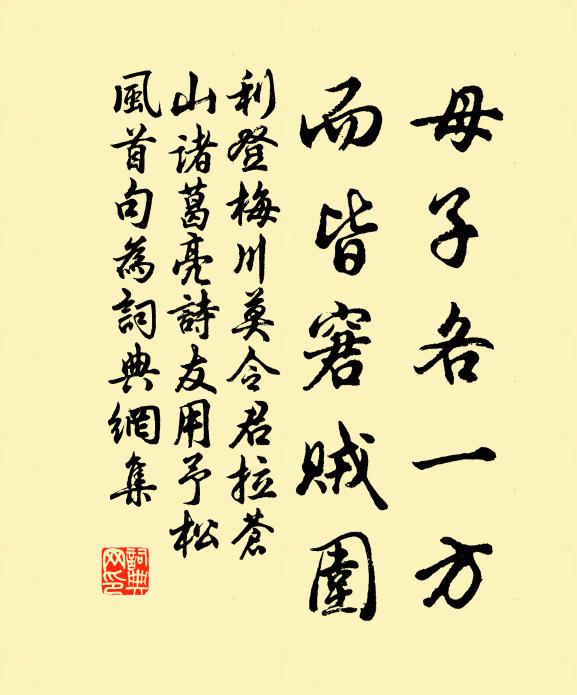 母子各一方
而皆窘賊圍
利登梅川莫令君拉蒼
山諸葛亮詩友用予松
風首句為詞典網集
詞典网印